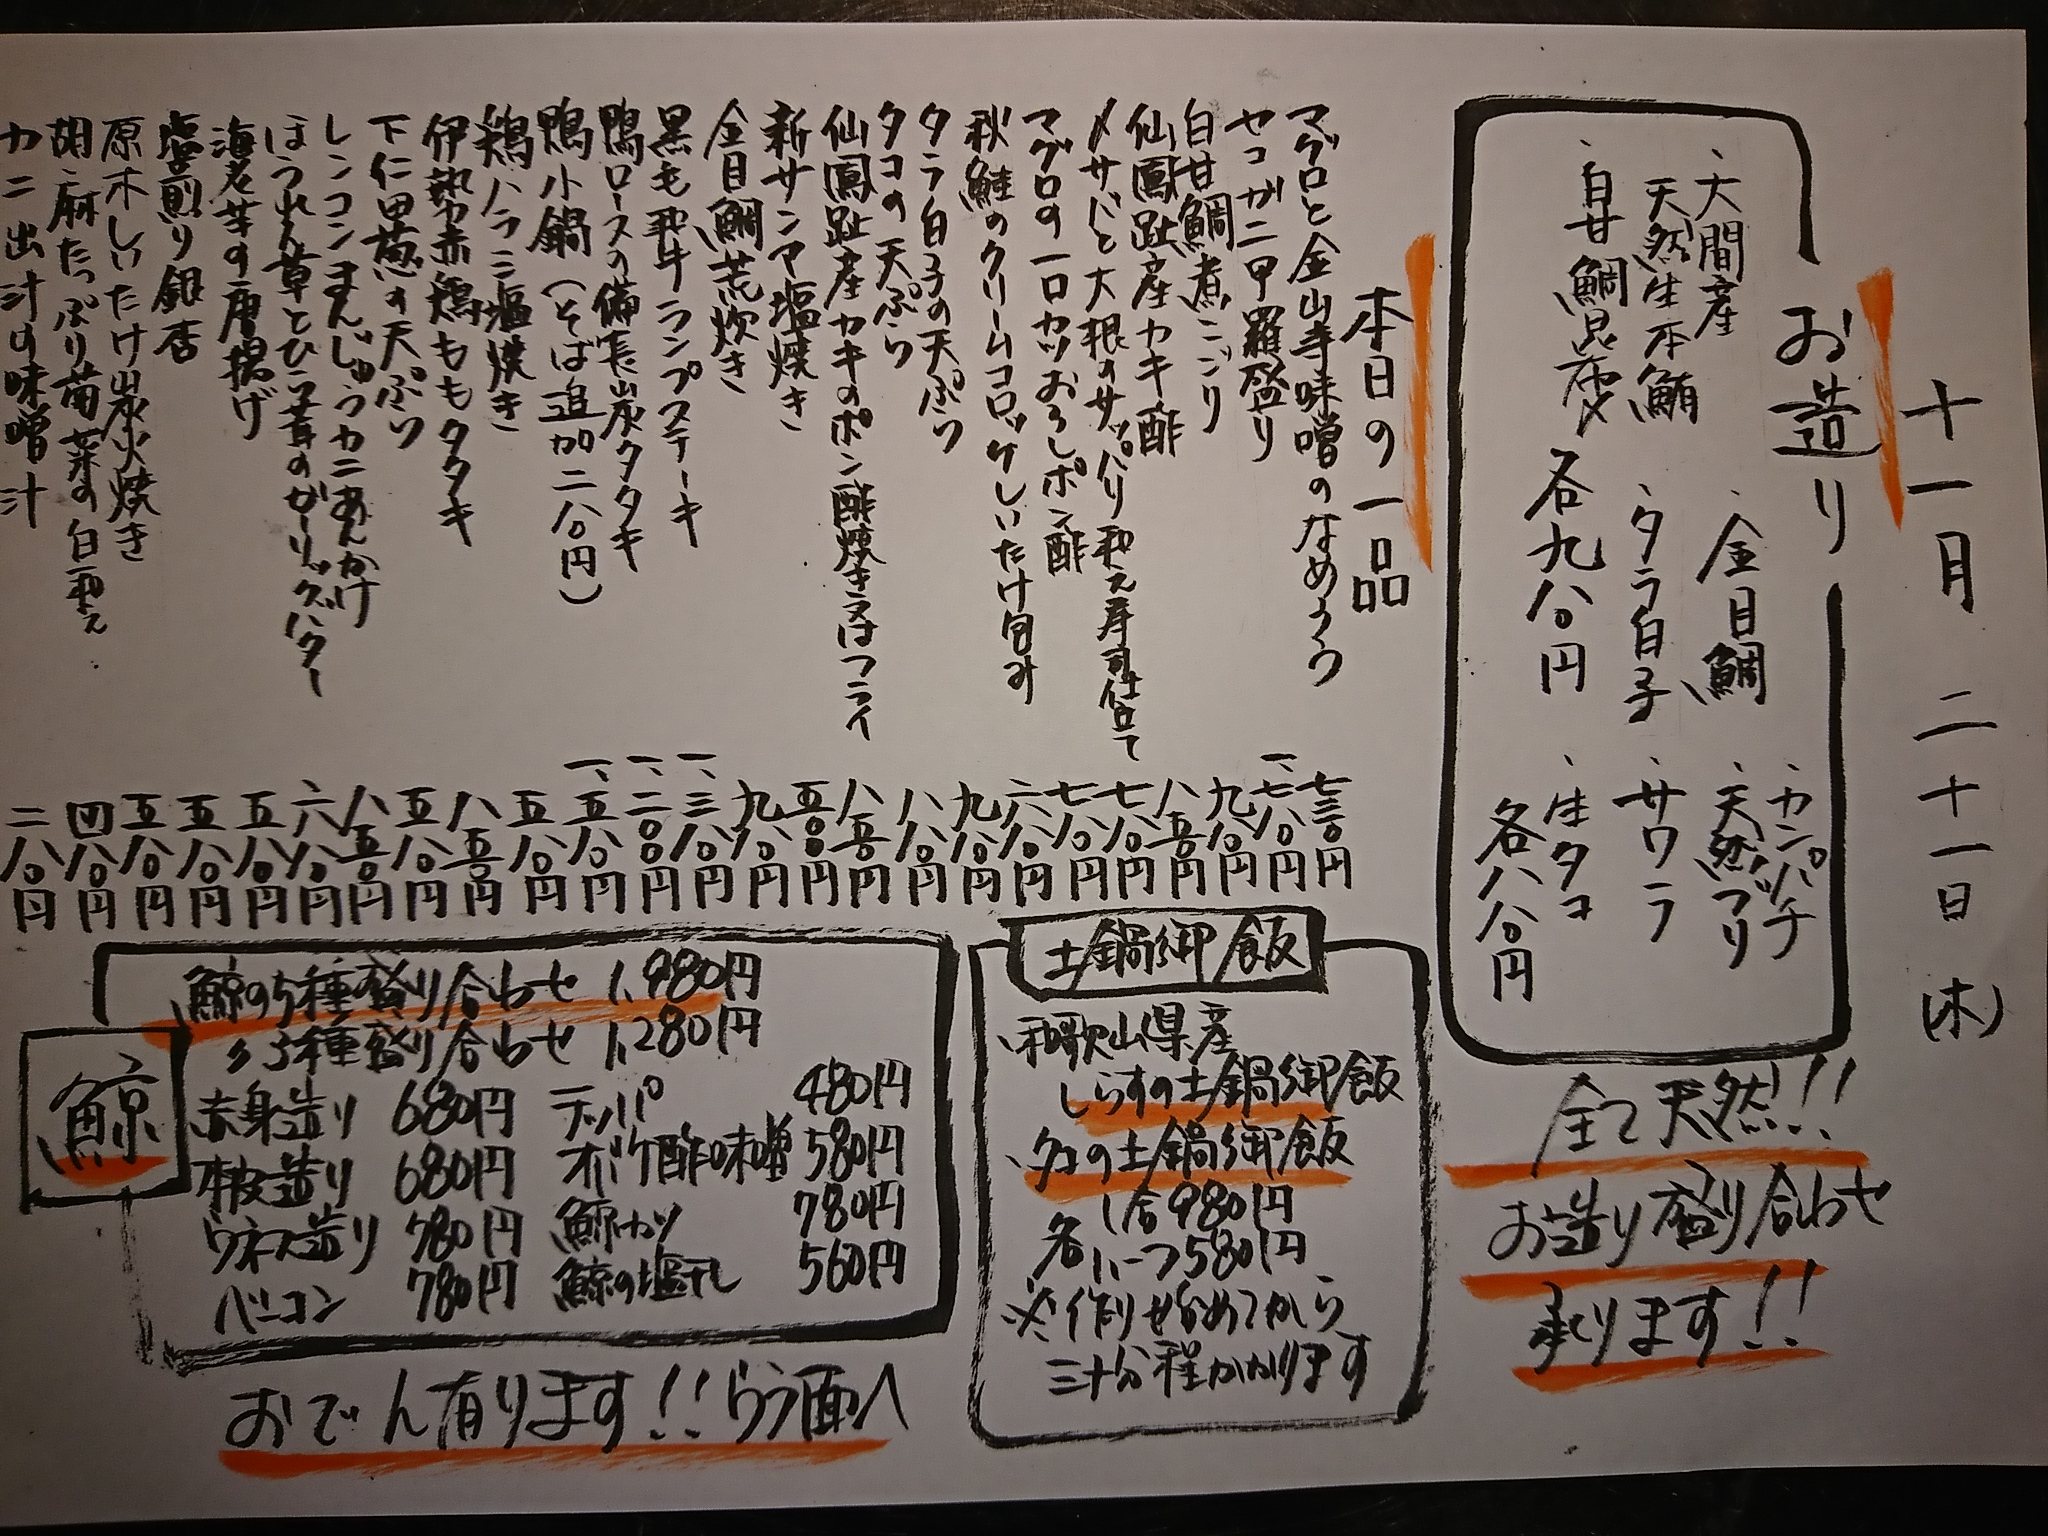 十一月 二十一日 (木)
お造り
・カンパチ
・大間産 ・金目鯛 ・天然ブリ
天然生本鮪 ・タラ白子 ・サワラ
・白甘鯛昆布〆 ・生タコ
各九八〇円 各八八〇円
全て天然!!
お造り盛り合わせ
承ります!!
本日の一品
マグロと金山寺味噌のなめろう 七三〇円
セコガニ甲羅盛り 一、七八〇円
白甘鯛煮こごり 九八〇円
仙鳳趾産カキ酢 八五〇円
〆サバと大根のサッパリ和え寿司仕立て 七八〇円
マグロの一口カツおろしポン酢 七八〇円
秋鮭のクリームコロッケしいたけ包み 六八〇円
タラ白子の天ぷら 九八〇円
タコの天ぷら 八八〇円
仙鳳趾産カキのポン酢焼き又はフライ 八五〇円
新サンマ塩焼き 五〇〇円
金目鯛荒炊き 九八〇円
黒毛和牛ランプステーキ 一、三八〇円
鴨ロースの備長炭タタキ 一、二〇〇円
鴨小鍋(そば追加二八〇円) 一、五八〇円
鶏ハラミ塩焼き 五八〇円
伊勢赤鶏ももタタキ 八五〇円
下仁田葱の天ぷら 五八〇円
レンコンまんじゅうカニあんかけ 八五〇円
ほうれん草とひら茸のガーリックバター 六八〇円
海老芋の唐揚げ 五八〇円
塩煎り銀杏 五八〇円
原木しいたけ炭火焼き 五八〇円
胡麻たっぷり菊菜の白和え 四八〇円
カニ出汁の味噌汁 二八〇円
土鍋御飯
・和歌山県産
しらすの土鍋御飯
・クエの土鍋御飯
1合980円
各ハーフ580円
※作り始めてから
三十分程かかります
鯨
鯨の5種盛り合わせ 1,980円
〃3種盛り合わせ 1,280円
赤身造り 680円 テッパ 480円
本皮造り 680円 オバケ酢味噌 580円
ウネス造り 780円 鯨カツ 780円
ベーコン 780円 鯨の塩干し 560円
おでん有ります!!うら面へ